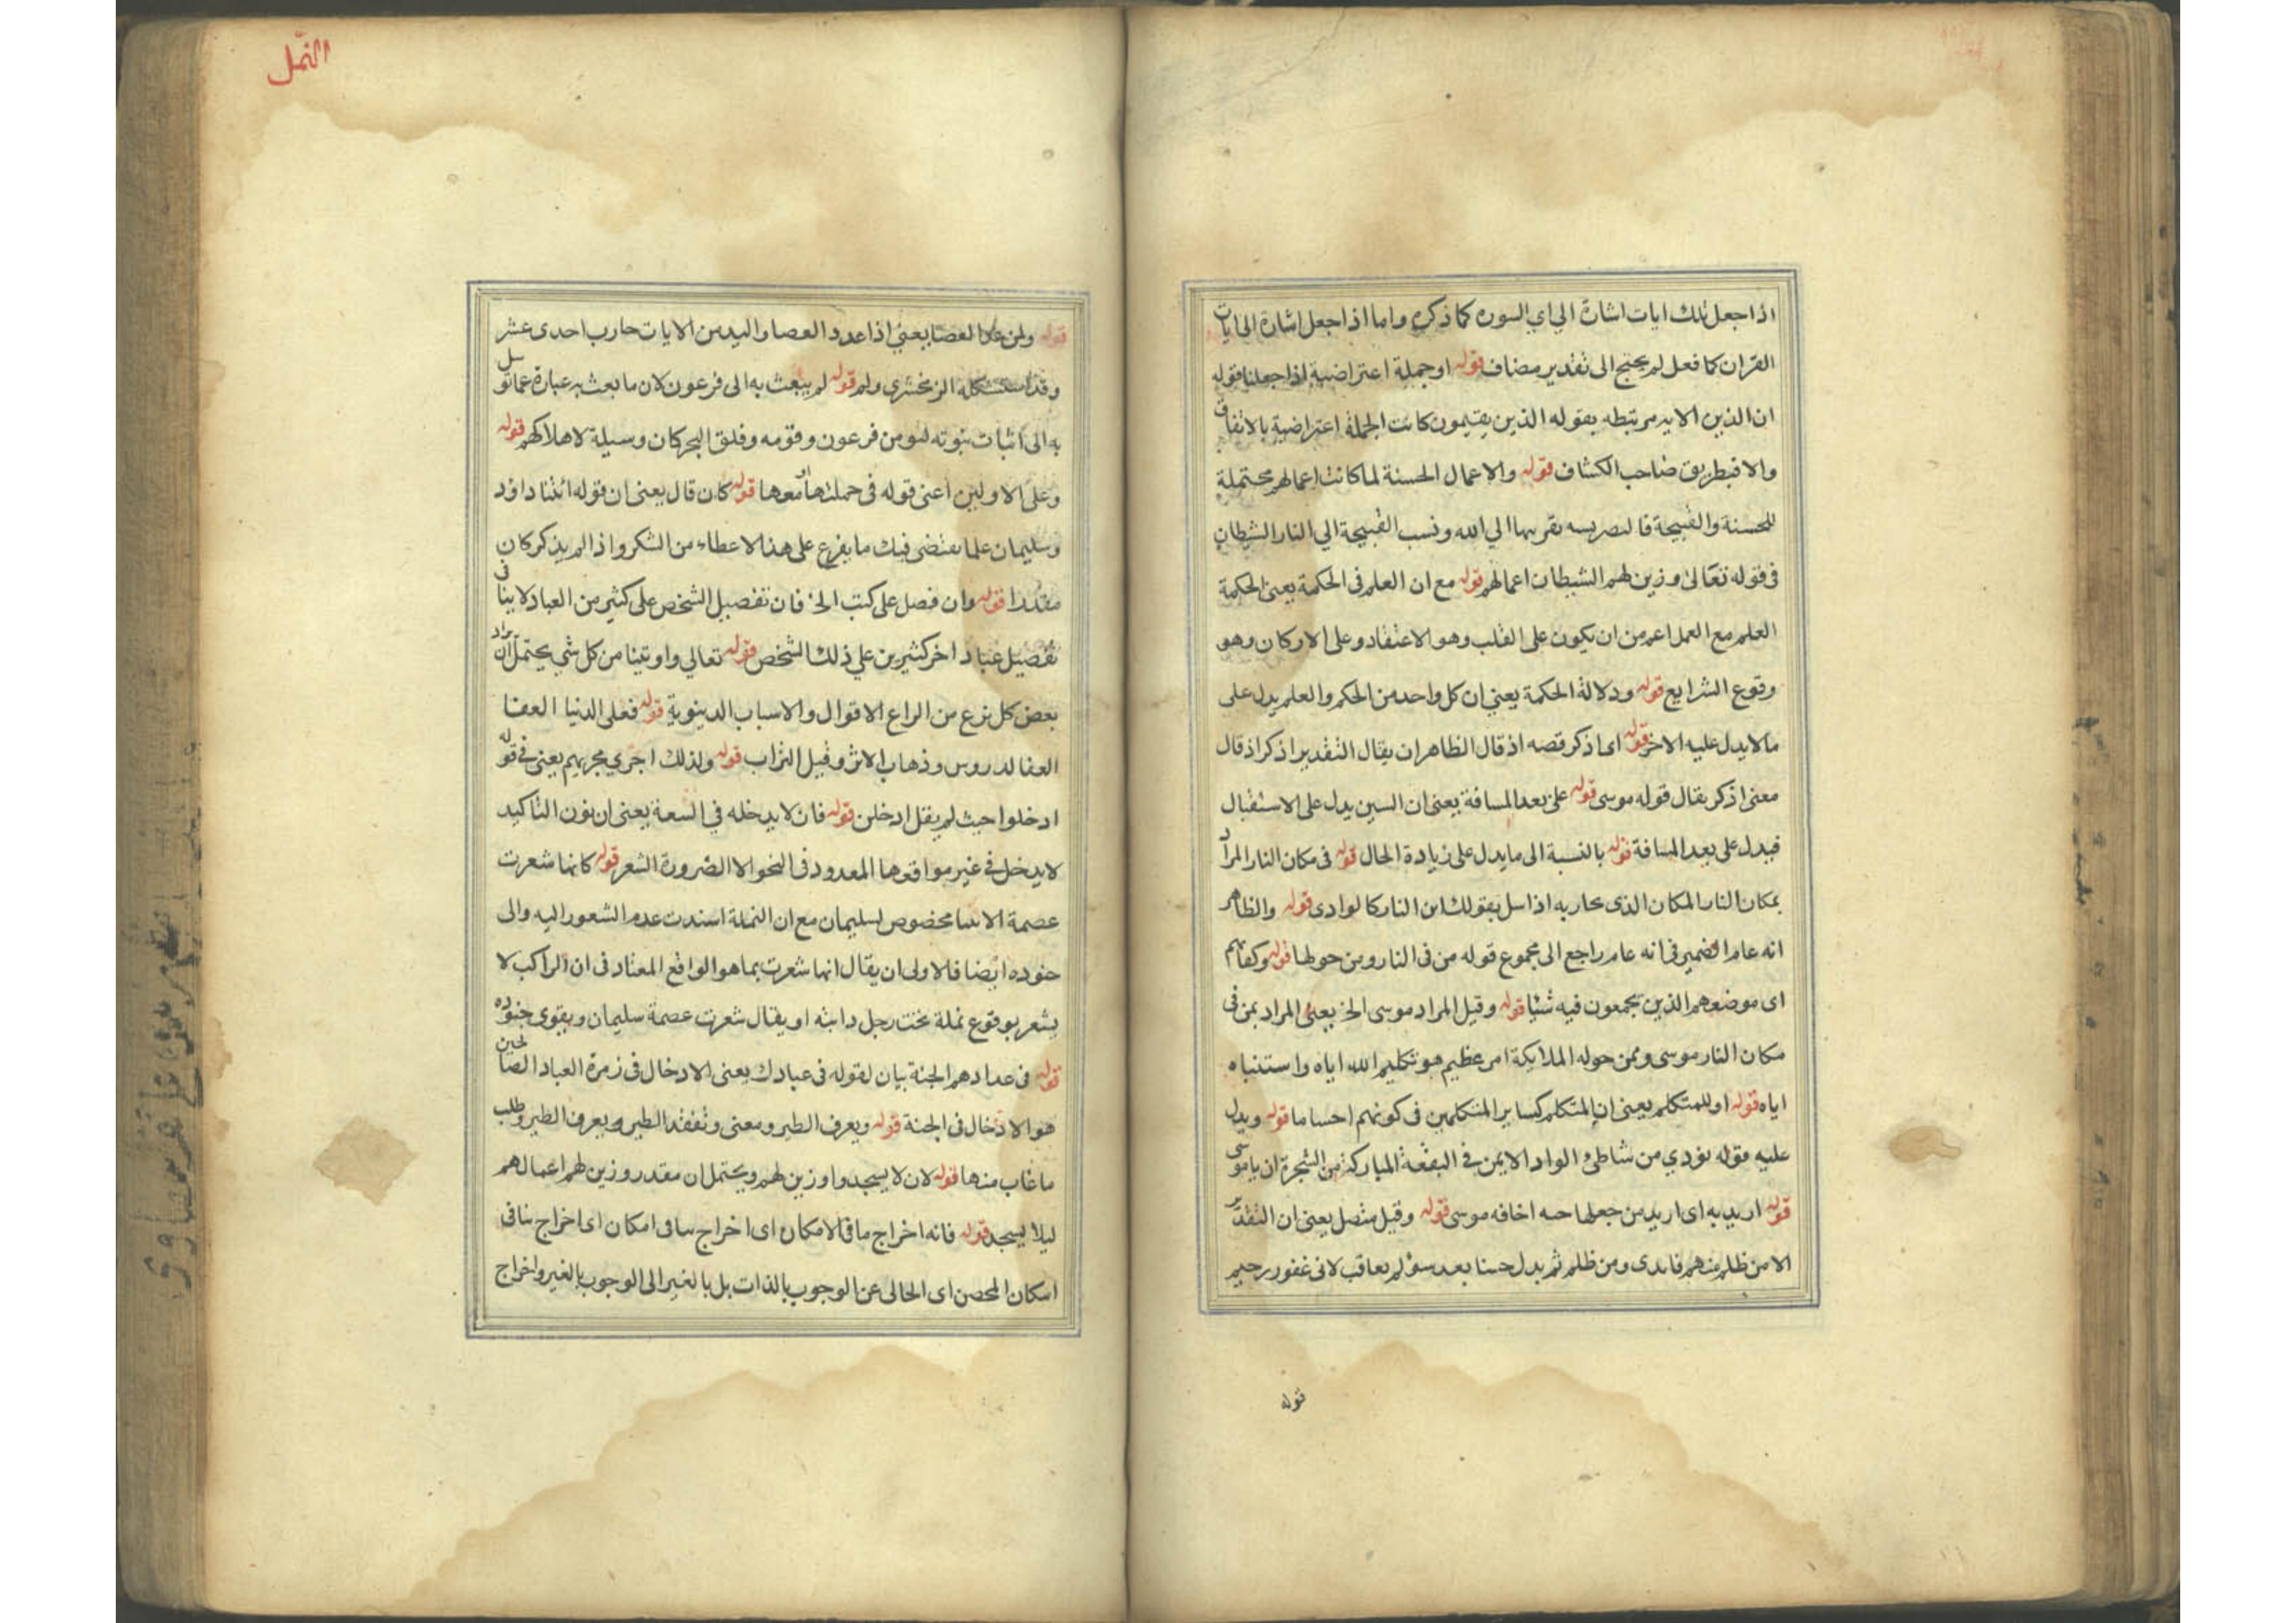 اذا جعل تلك ايات اشارة الى اي السورة كما ذكره واما اذا جعل اشارة الى ايات
القران كما فعل لم يحتج الى تقدير مضاف قوله او جملة اعتراضية اذا جعلنا قوله
ان الذين الايه مرتبطه بقوله الذين يقيمون كانت الجملة اعتراضية بالاتفاق
والا فبطريق صاحب الكشاف قوله والاعمال الحسنة لما كانت اعمالهم محتملة
للحسنة والقبيحة الى الله ونسب القبيحة الي النار الشيطان
في قوله تعالى وزين لهم الشيطان اعمالهم قوله مع ان العلم فى الحكمة يعنى الحكمة
العلم مع العمل اعم من ان يكون على القلب وهو الاعتقاد وعلى الاركان وهو
وقوع الشرايع قوله ودلالة الحكمة يعني ان كل واحد من الحكم والعلم يدل على
مالا يدل عليه الاخر قوله اى اذكر قصه اذ قال الظاهر ان يقال التقدير اذكر اذ قال
معنى اذكر يقال قوله موسى قوله على بعد المسافة يعنى ان السين يدل على الاستقبال
فيدل على بعد المسافة قوله بالنسبة الى ما يدل على زيادة الحال قوله فى مكان النار المراد
بمكان النار المكان الذى بقولك اين النار كالوادى قوله والظاهر
انه عام الضمير فى انه عام راجع الى مجموع قوله من فى النار ومن حولها قوله وكفاتهم
اى موضعهم الذين يجمعون فيه قوله وقيل المراد موسى الخ يعنى المراد بمن فى
مكان النار موسى وممن حوله الملايكة امر عظيم هو تكليم الله اياه واستنباه
اياه قوله او للمتكلم يعنى ان المتكلم كساير المتكلمين فى كونهم احساما قوله ويدل
عليه قوله نودي من شاطئ الواد الايمن في البقعة المباركة من الشجرة ان يا موسى
قوله اريد به اى اريد من جعلها اخافه موسى قوله وقيل متصل يعنى ان التقدير
الا من ظلم منهم ومن ظلم ثم بدل حسنا بعد سوء لم يعاقب لانى غفور رحيم
قوله
النمل
قوله ولمن عد العصا يعنى اذا عدد العصا واليد من الايات احدى عشر
وقد استشكله الزمخشرى ولم قوله لم يبعث به الى فرعون لان ما بعث به عبارة عما توسل
به الى اثبات نبوته من فرعون وقومه وفلق البحر كان وسيلة لاهلاكهم قوله
وعلى الاولين اعنى قوله فى جملتها او معها قوله كان قال يعنى ان قوله اتينا داود
وسليمان علما يقتضى ما يفرع على هذا الاعطاء من الشكر واذا لم يذكر كان
مقدرا قوله وان فضل على كتب الخ فان تفصيل الشخص على كثير من العباد لا ينافى
تفضيل عباد اخر كثيرين علي ذلك الشخص قوله تعالي واوتينا من كل شي يحتمل ان يراد
بعض كل نوع من انواع الاقوال والاسباب الدينوية قوله فعلى الدنيا العفا
العفا لدروس وذهاب الاثر وقيل التراب قوله ولذلك اجري مجريهم يعنى في قوله
ادخلوا حيث لم يقل ادخلن قوله فان لا يدخله في السعة يعنى ان نون التاكيد
لا يدخل في غير مواقعها المعدود فى النحو الا الضرورة الشعر قوله كانها شعرت
عصمة الانبيا مخصوص لسليمان مع ان النملة اسندت عدم الشعور اليه والى
جنوده ايضا فالاولى ان يقال انها شعرت بما هو الواقع المعتاد فى ان الراكب لا
يشعر بوقوع نملة تحت رجل دابته او يقال شعرت عصمة سليمان وبقوى جنوده
قوله فى عدادهم الجنة بيان لقوله فى عبادك يعنى الادخال فى زمرة العباد الصالحين
هو الادخال فى الجنة قوله ويعرف الطير ومعنى وتفقد الطير ويعرف الطير وطلب
ما غاب منها قوله لان لا يسجدوا وزين لهم ويحتمل ان مقدر وزين لهم اعمالهم
ليلا يسجد قوله فانه اخراج ما فى الامكان اى اخراج ما فى امكان اى اخراج
امكان المحض اى الخالى عن الوجوب بالذات بل بالغير الى الوجوب بالغير واخراج